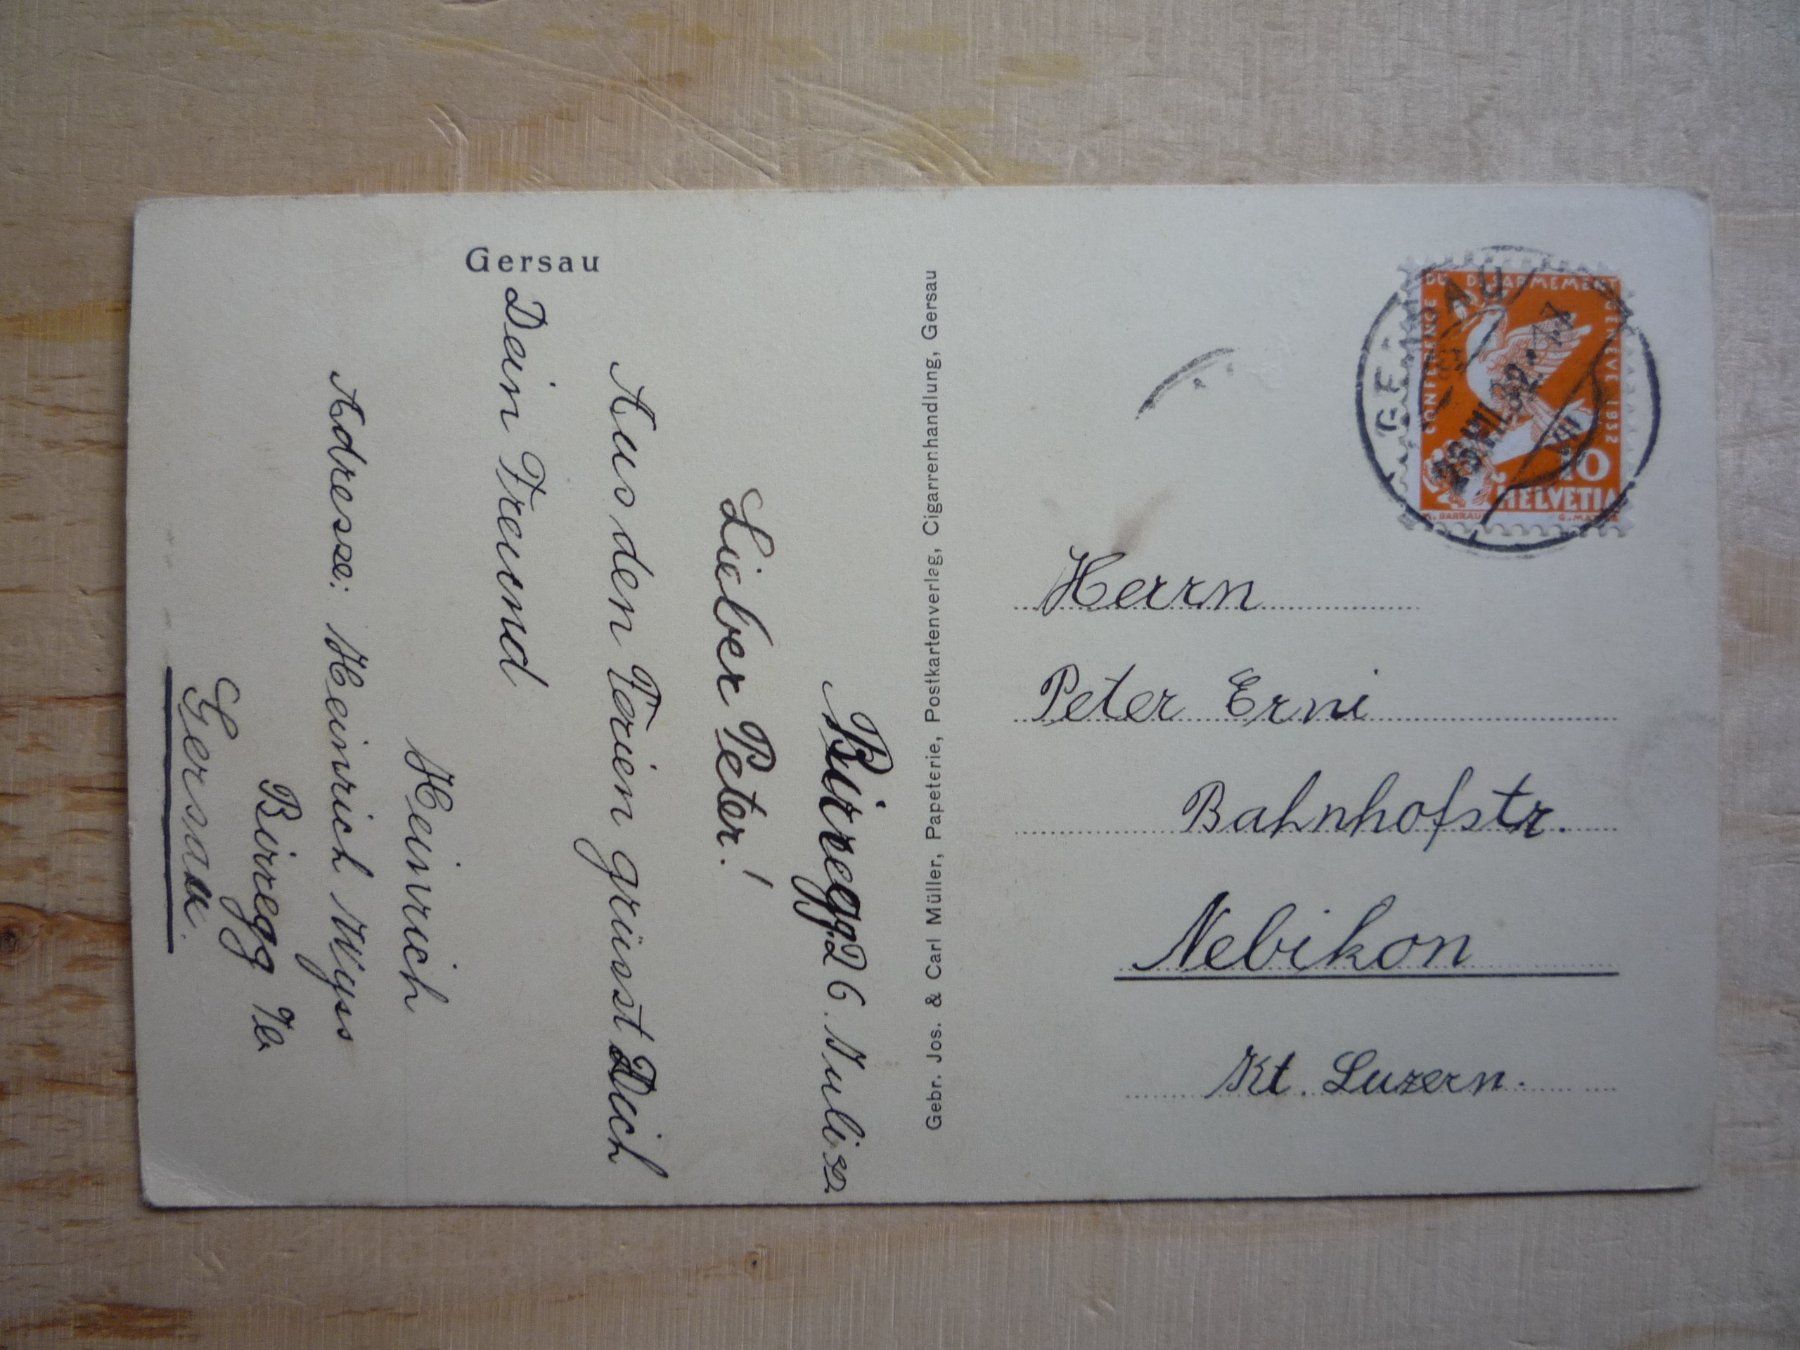 Gersau
Birregg 26. Juli 32.
Lieber Peter!
Aus den Ferien grüsst Dich
Dein Freund
Heinrich
Adresse: Heinrich Wyss
Birregg
Gersau.
Gebr. Jos. & Carl Müller, Papeterie, Postkartenverlag, Cigarrenhandlung, Gersau
CONFERENCE DU DESARMEMENT GENEVE 1932
10
HELVETIA
GERSAU
Herrn
Peter Erni
Bahnhofstr.
Nebikon
Kt. Luzern.